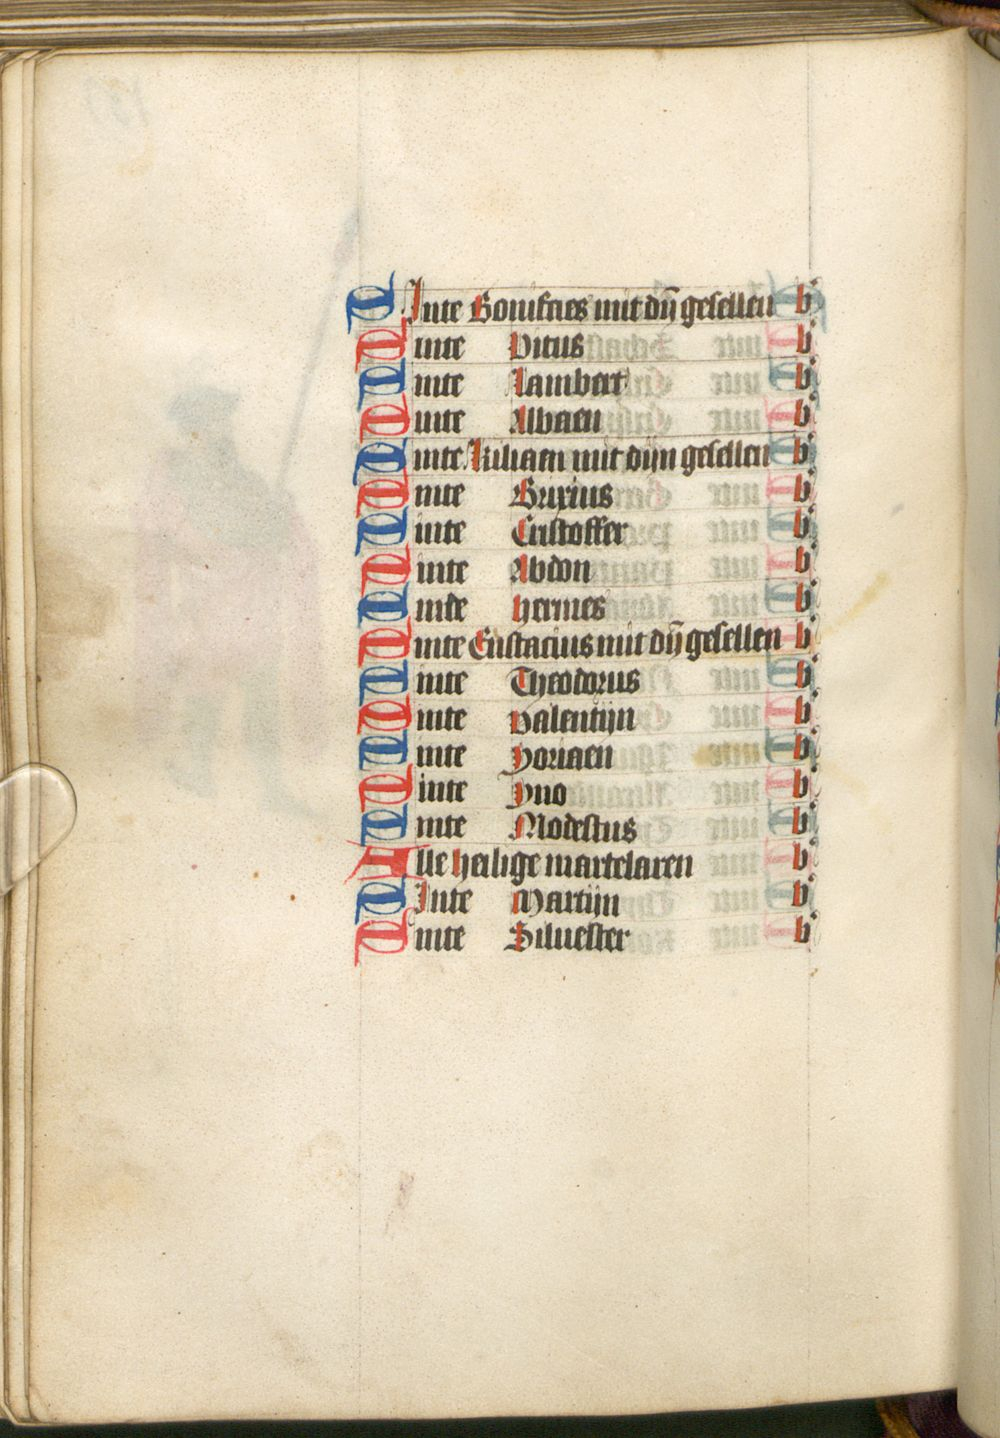 SInte Bonifaes mit dÿ gesellen b'
Sinte Vitus b'
Sinte Lambert b'
Sinte Albaen b'
Sinte Juliaen mit dijn gesellen b'
Sinte Brixius b'
Sinte Cristoffer b'
Sinte Abdon b'
Sinte hermes b'
Sinte Eustacius mit dÿ gesellen b'
Sinte Theodorus b'
Sinte valentijn b'
Sinte yoriaen b'
Sinte yuo b'
Sinte Modestus b'
Alle heilige martelaren b'
SInte Martijn b'
Sinte Siluester b'